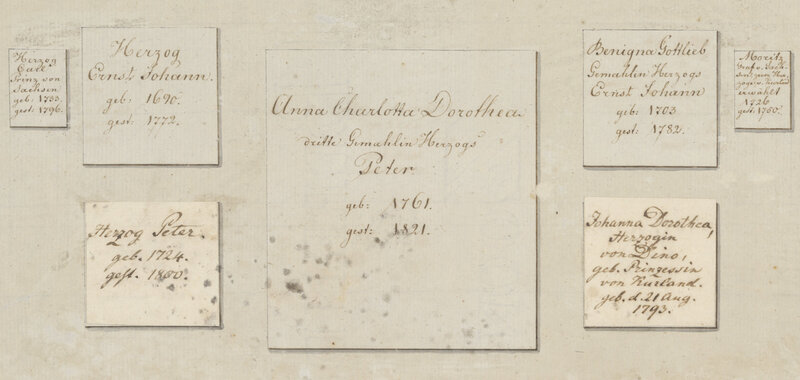 Herzog
Carl
Prinz von
Sachsen
geb: 1733.
gest: 1796.
Herzog
Ernst Johann.
geb: 1690.
gest: 1772.
Anna Charlotta Dorothea
dritte Gemahlin Herzogs
Peter
geb: 1761.
gest: 1821.
Benigna Gottlieb
Gemahlin Herzogs
Ernst Johann
geb: 1703
gest: 1782.
Moritz
erwählt
1726
gest: 1750.
Herzog Peter.
geb. 1724.
gest. 1800.
Johanna Dorothea,
Herzogin
von Dino,
geb. Prinzessin
von Kurland.
geb. d. 21 Aug.
1793.